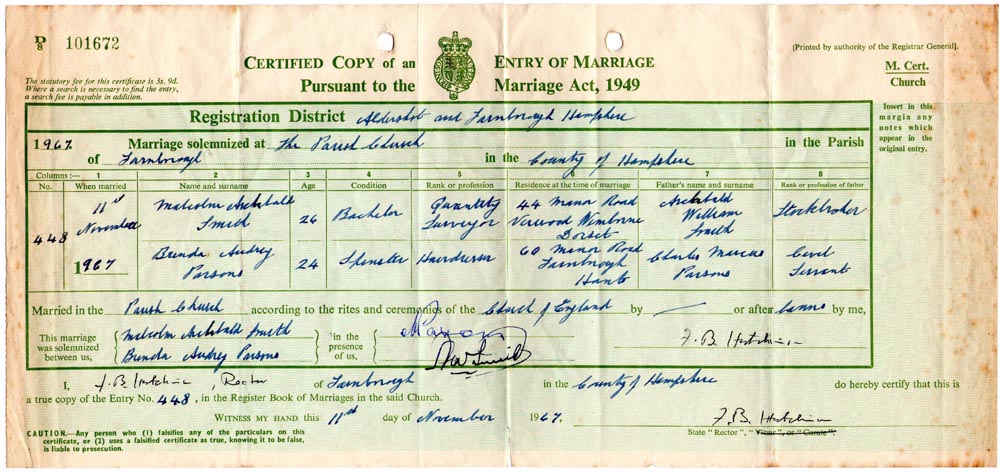 D/8 101672
[Printed by authority of the Registrar General].
CERTIFIED COPY of an ENTRY OF MARRIAGE
Pursuant to the Marriage Act, 1949
M. Cert.
Church
The statutory fee for this certificate is 3s. 9d.
Where a search is necessary to find the entry,
a search fee is payable in addition.
Insert in this
margin any
notes which
appear in the
original entry.
Registration District Aldershot and Farnborough Hampshire
1967. Marriage solemnized at The Parish Church in the Parish
of Farnborough in the County of Hampshire
Columns :— 1 2 3 4 5 6 7 8
No. When married Name and surname Age Condition Rank or profession Residence at the time of marriage Father's name and surname Rank or profession of father
448
11th
November
1967
Malcolm Archibald
Smith
26
Bachelor
Quantity
Surveyor
44 Manor Road
Verwood Wimborne
Dorset
Archibald
William
Smith
Stockbroker
Brenda Audrey
Parsons
24
Spinster
Hairdresser
60 Manor Road
Farnborough
Hants
Charles Marcus
Parsons
Civil
Servant
Married in the Parish Church according to the rites and ceremonies of the Church of England by — or after banns by me,
This marriage
was solemnized
between us,
Malcolm Archibald Smith
Brenda Audrey Parsons
in the
presence
of us,
F. B. Hutchinson
I, F. B. Hutchinson, Rector of Farnborough in the County of Hampshire do hereby certify that this is
a true copy of the Entry No. 448, in the Register Book of Marriages in the said Church.
WITNESS MY HAND this 11th day of November 1967,
F. B. Hutchinson
State "Rector", "Vicar", or "Curate".
CAUTION.—Any person who (1) falsifies any of the particulars on this
certificate, or (2) uses a falsified certificate as true, knowing it to be false,
is liable to prosecution.